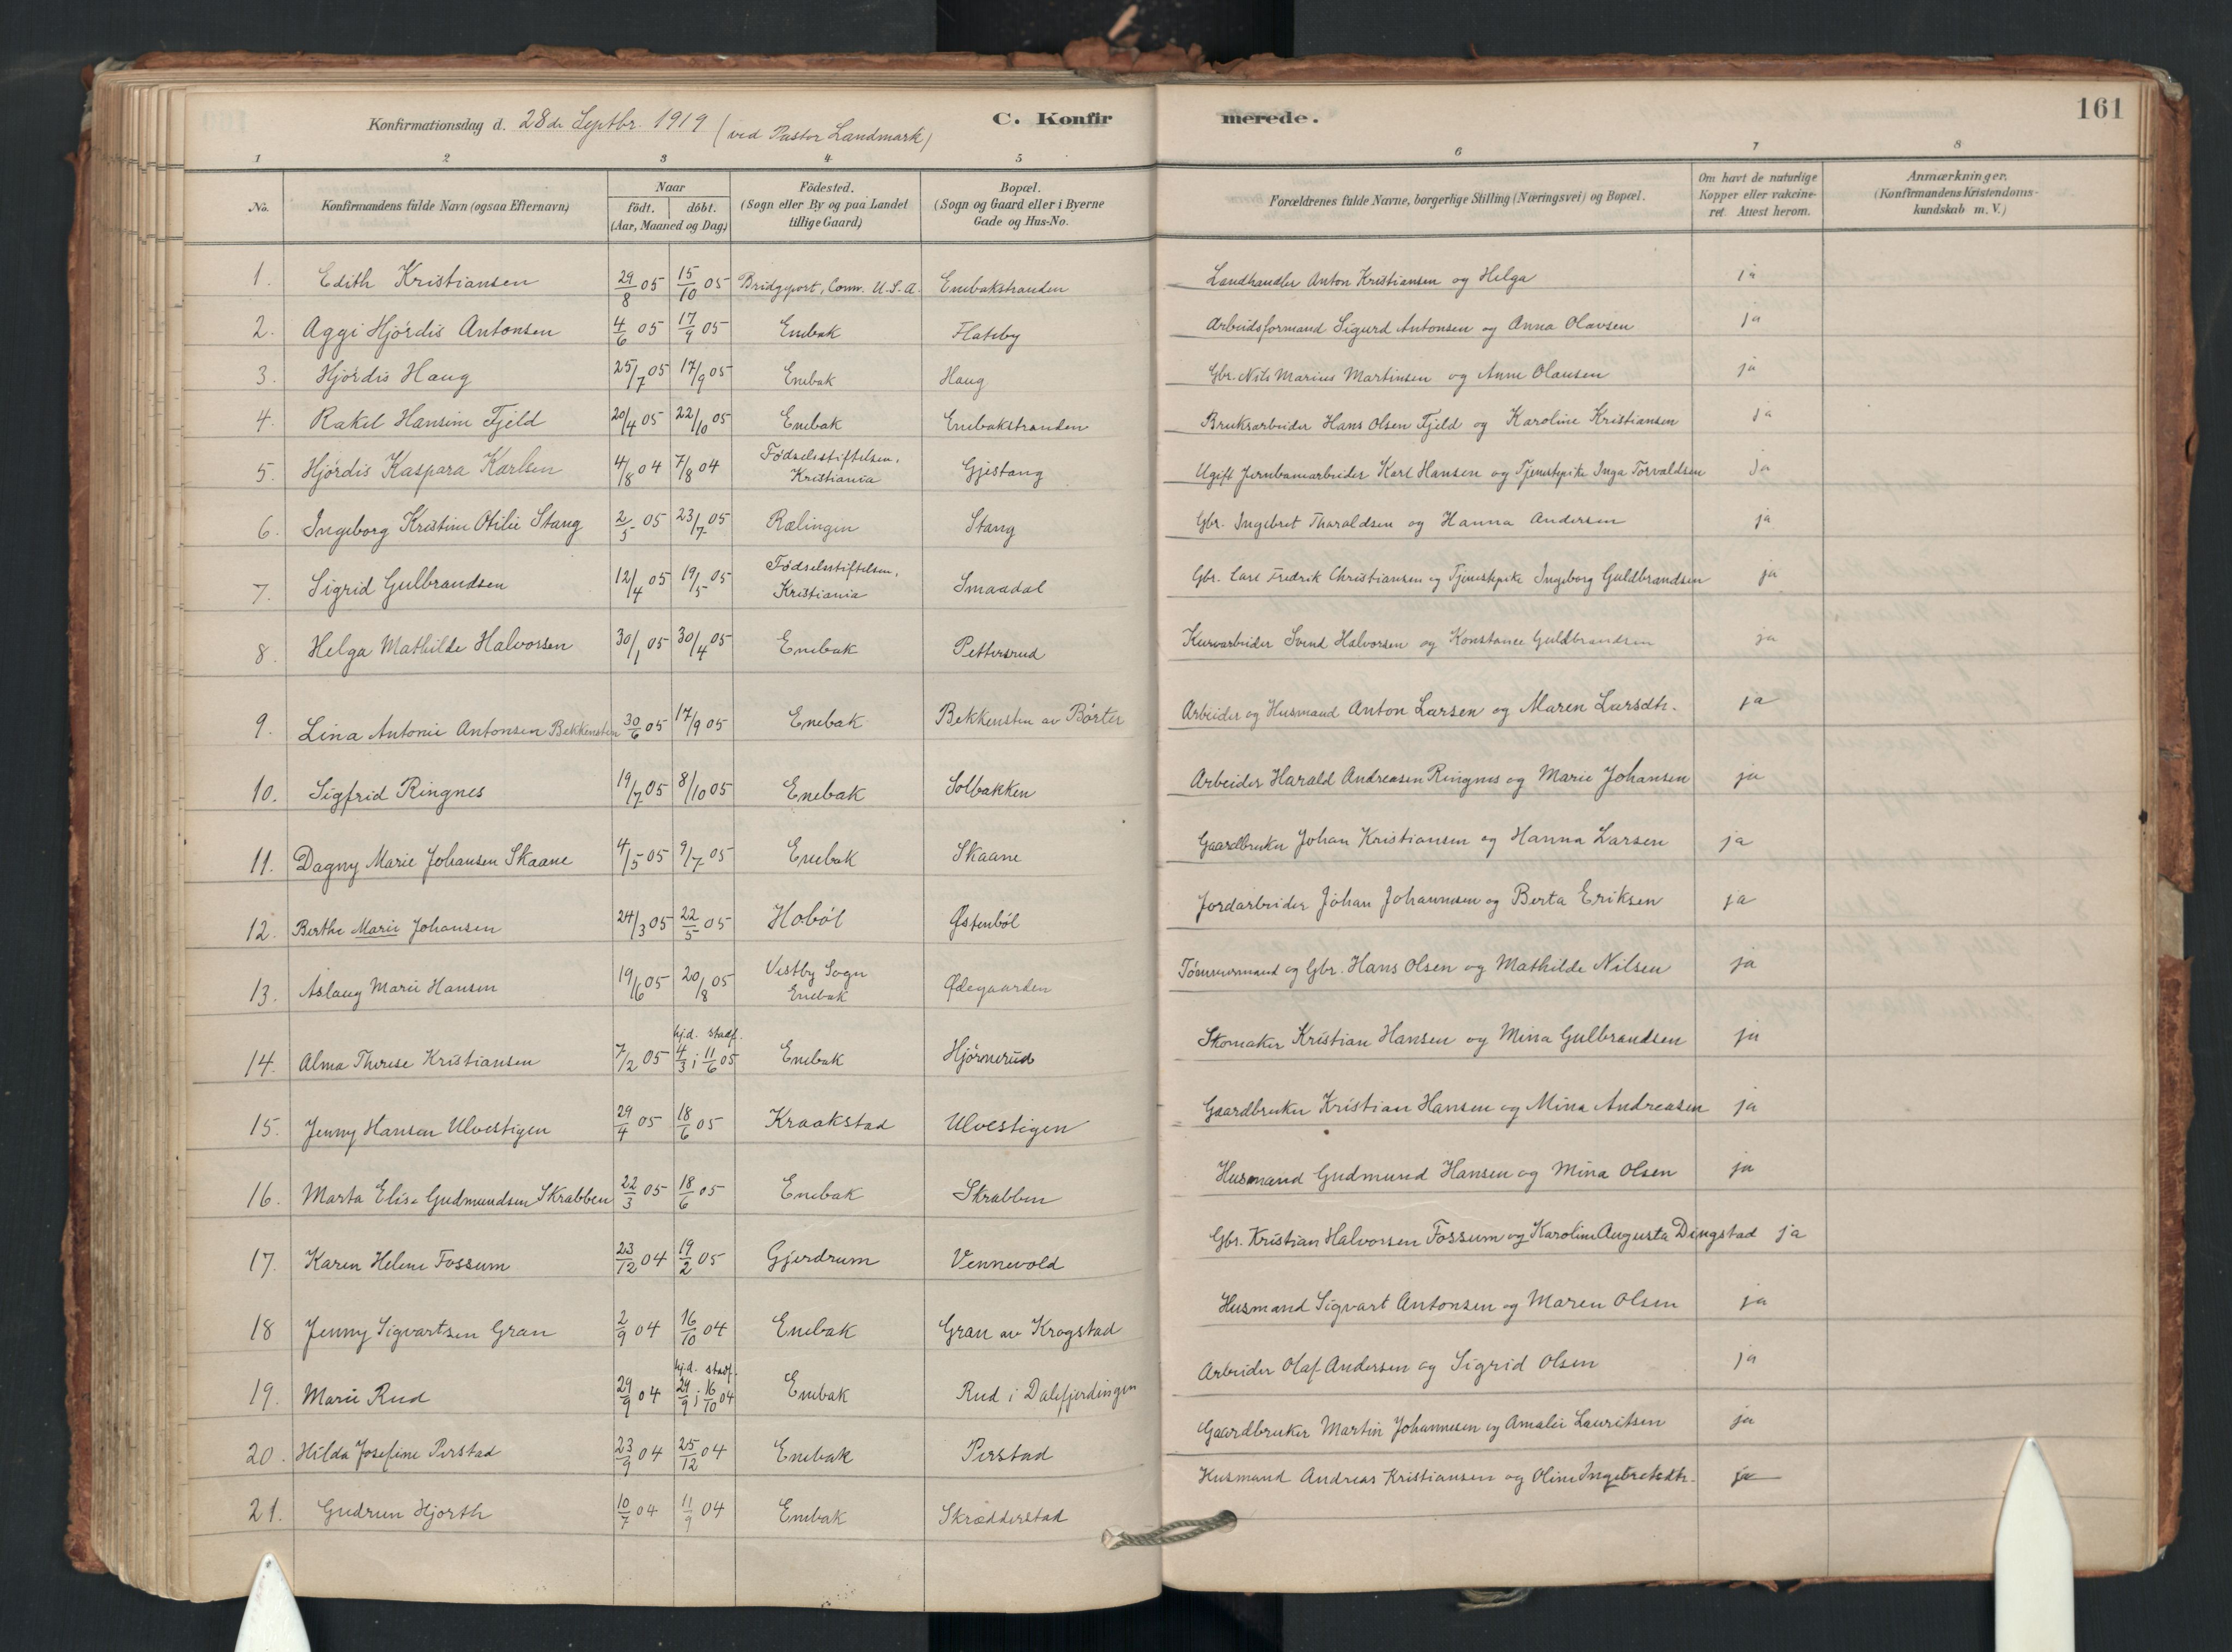 Konfirmationsdag d. 28de Septbr. 1919 (ved Pastor Landmark)
C. Konfirmerede.
161
1 2 3 4 5 6 7 8
No.
Konfirmandens fulde Navn (ogsaa Efternavn)
Naar
födt. döbt.
(Aar, Maaned og Dag)
Födested.
(Sogn eller By og paa Landet
tillige Gaard)
Bopæl.
(Sogn og Gaard eller i Byerne
Gade og Hus-No.
Forældrenes fulde Navne, borgerlige Stilling (Næringsvei) og Bopæl.
Om havt de naturlige
Kopper eller vakcine-
ret. Attest herom.
Anmærkninger.
(Konfirmandens Kristendoms-
kundskab m. V.)
1. Edith Kristiansen 29/8 05 15/10 05 Bridgeport, Conn. U.S.A. Enebakstranden Landhandler Anton Kristiansen og Helga ja
2. Aggi Hjórdis Antonsen 4/6 05 17/9 05 Enebak Flateby Arbeidsformand Sigurd Antonsen og Anna Olavsen ja
3. Hjórdis Haug 25/7 05 17/9 05 Enebak Haug Gbr. Nils Marius Martinsen og Anne Olausen ja
4. Rakel Hansine Fjeld 20/4 05 22/10 05 Enebak Enebakstranden Bruksarbeider Hans Olsen Fjeld og Karoline Kristiansen ja
5. Hjórdis Kaspara Karlsen 4/8 04 7/8 04 Födselsstiftelsen, Kristiania Gjestang Ugift Jernbanearbeider Karl Hansen og Tjenestepike Inga Torvaldsen ja
6. Ingeborg Kristine Otilie Stang 2/5 05 23/7 05 Rælingen Stang Gbr. Ingebret Tharaldsen og Hanna Andersen ja
7. Sigrid Gulbrandsen 12/4 05 19/5 05 Födselsstiftelsen, Kristiania Smaadal Gbr. Carl Fredrik Christiansen og Tjenestepike Ingeborg Guldbrandsen ja
8. Helga Mathilde Halvorsen 30/1 05 30/4 05 Enebak Pettersrud Kurvarbeider Svend Halvorsen og Konstance Guldbrandsen ja
9. Lina Antonie Antonsen Bekkensten 30/6 05 17/9 05 Enebak Bekkensten av Börter Arbeider og Husmand Anton Larsen og Maren Larsdtr. ja
10. Sigfrid Ringnes 19/7 05 8/10 05 Enebak Solbakken Arbeider Harald Andreasen Ringnes og Marie Johansen ja
11. Dagny Marie Johansen Skaane 4/5 05 9/7 05 Enebak Skaane Gaardbruker Johan Kristiansen og Hanna Larsen ja
12. Berthe Marie Johansen 24/3 05 22/5 05 Hoból Østenból Jordarbeider Johan Johannesen og Berta Eriksen ja
13. Aslaug Marie Hansen 19/6 05 20/8 05 Vestby Sogn Enebak Ødegaarden Tómmermand og Gbr. Hans Olsen og Mathilde Nilsen ja
14. Alma Therese Kristiansen 7/2 05 hj.d. 4/3 i stadf. 11/6 05 Enebak Hjórnerud Skomaker Kristian Hansen og Mina Gulbrandsen ja
15. Jenny Hansen Ulvestigen 29/4 05 18/6 05 Kraakstad Ulvestigen Gaardbruker Kristian Hansen og Mina Andreasen ja
16. Marta Elise Gudmundsen Skrabben 22/3 05 18/6 05 Enebak Skrabben Husmand Gudmund Hansen og Mina Olsen ja
17. Karen Helene Fossum 23/12 04 19/2 05 Gjerdrum Vennevold Gbr. Kristian Halvorsen Fossum og Karoline Augusta Dingstad ja
18 Jenny Sigvartsen Gran 2/9 04 16/10 04 Enebak Gran av Krogstad Husmand Sigvart Antonsen og Maren Olsen ja
19. Marie Rud 29/9 04 hj.d. 29/9 i stadf. 16/10 04 Enebak Rud i Dalefjerdingen Arbeider Olaf Andersen og Sigrid Olsen ja
20. Hilda Josefine Perstad 23/9 04 25/12 04 Enebak Perstad Gaardbruker Martin Johannesen og Amalie Lauritsen ja
21. Gudrun Hjorth 10/7 04 11/9 04 Enebak Skrædderstad Husmand Andreas Kristiansen og Oline Ingebretsdtr. ja